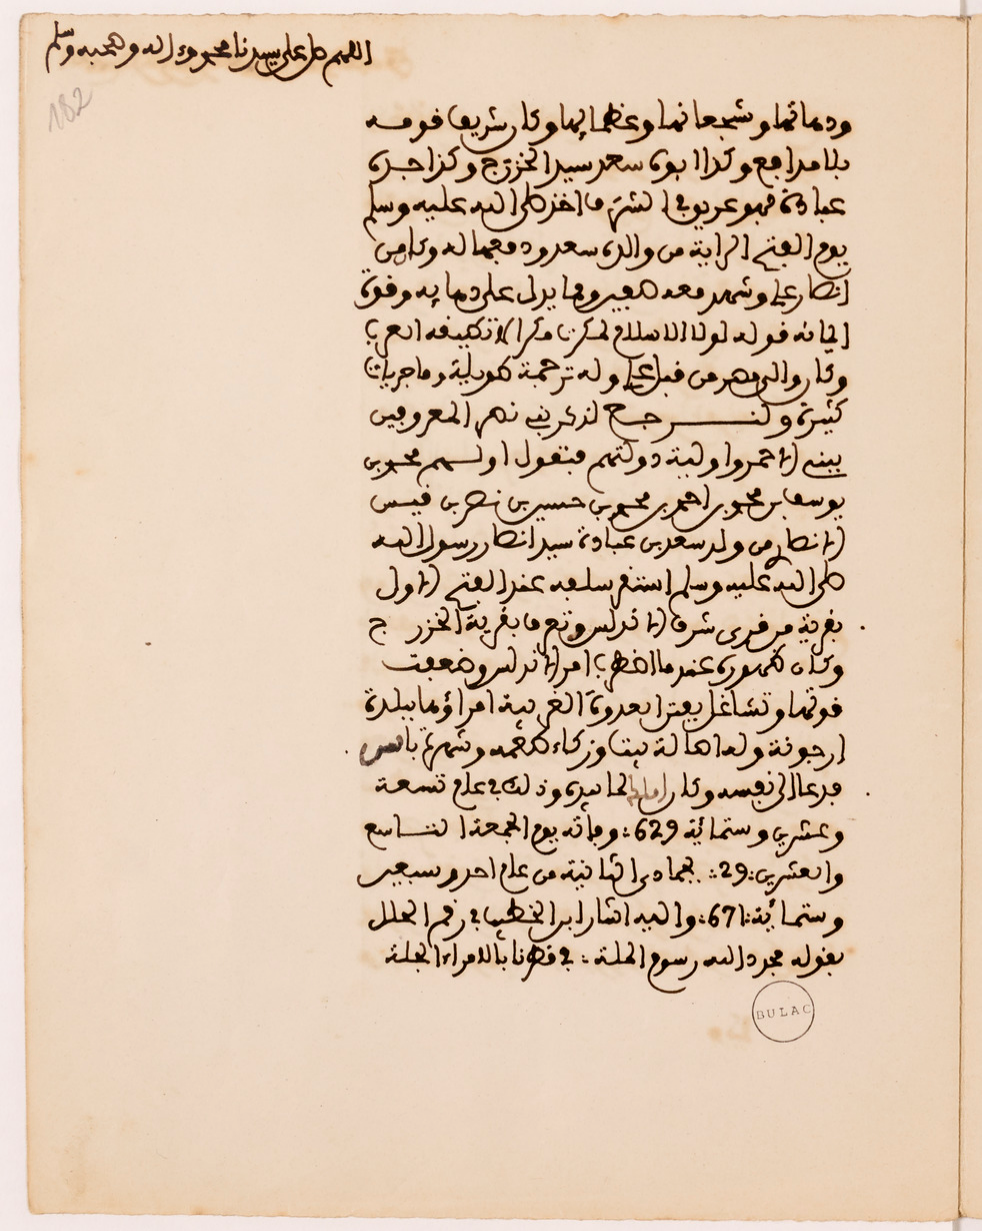 اللهم صل على سيدنا محمد وءاله وصحبه وسلم
182
ودهاتها وشجعانها وعظمائها وكان شريف قومه
بلا مدافع وكذا أبوه سعد سيد الخزرج وكذا جده
عبادة فهو عريق في الشرف أخذ صلى الله عليه وسلم
يوم الفتح الراية من والده سعد ودفعها له وكان من
أنصار علي وشهد معه صفين ومما يدل على دهائه وقوة
إيمانه قوله لولا الاسلام لمكرت مكرا لا تطيقه العرب
وكان والي مصر من قبل علي وله ترجمة طويلة وماجريات
كثيرة ولنرجع لذكر بني نصر المعروفين
ببني الاحمر وأولية دولتهم فنقول أولهم محمد بن
يوسف بن محمد بن احمد بن محمد بن حسين بن نصر بن قيس
الانصاري من ولد سعد بن عبادة سيد انصار رسول الله
صلى الله عليه وسلم استقر سلفه عند الفتح الاول
بقرية من قرى شرق الاندلس وتعرف بقرية الخزرج
وكان ظهوره عندما اضطرب امر الاندلس وضعفت
قوتها وتشاغل بفتن العدوة الغربية امراؤها ببلده
ارجونة وله اصالة بيت وزكاء طعمة وشهرة بالس
فدعا الى نفسه وكان الجانب وذلك في عام تسعة
وعشرين وستمائة 629: وفاته يوم الجمعة التاسع
والعشرين: 29: بجمادى الثانية من عام احد وسبعين
وستمائة: 671: واليه اشار ابن الخطيب في رقم الحلل
بقوله مجدد الله رسوم الملة: في قطرنا بالامراء الجلة
BULAC